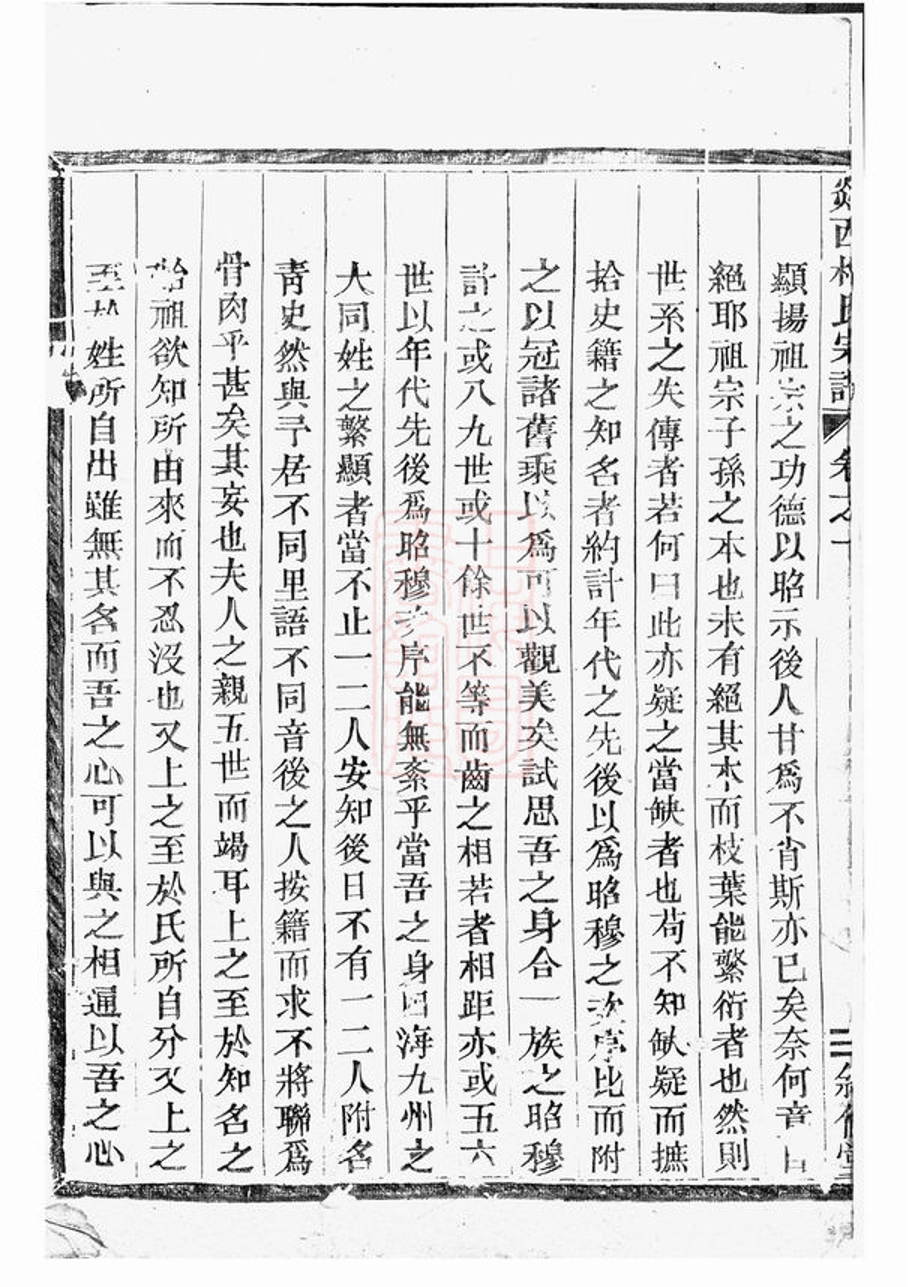 西氏宗譜 卷之
顯揚祖宗之功德以昭示後人甘爲不肖斯亦已矣奈何竟
絕耶祖宗子孫之本也未有絕其本而枝葉能繁衍者也然則
世系之失傳者若何曰此亦疑之當缺者也茍不知缺疑而摭
拾史籍之知名者約計年代之先後以爲昭穆之次序比而附
之以冠諸舊乘以爲可以觀美矣試思吾之身合一族之昭穆
計之或八九世或十餘世不等而齒之相若者相距亦或五六
世以年代先後爲昭穆次序能無紊乎當吾之身四海九州之
大同姓之繁顯者當不止一二人安知後日不有一二人附名
靑史然與予居不同里語不同音後之人按籍而求不將聯爲
骨肉乎甚矣其妄也夫人之親五世而竭耳上之至於知名之
始祖欲知所由來而不忍沒也又上之至於氏所自分又上之
至於姓所自出雖無其名而吾之心可以與之相通以吾之心